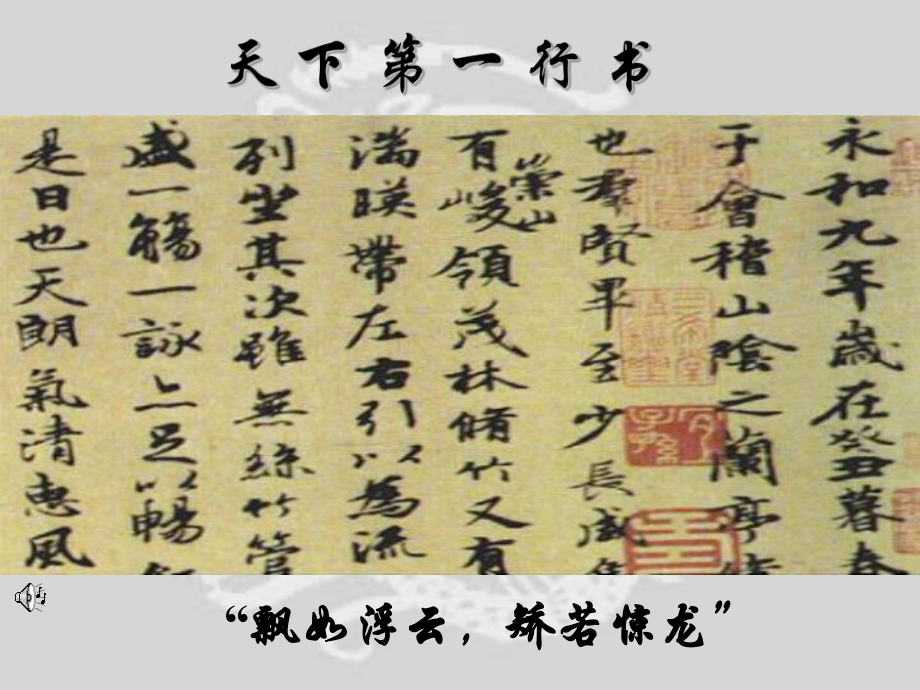 天下第一行书
永和九年歲在癸丑暮春
于會稽山陰之蘭亭
也羣賢畢至少長咸
有崇山峻領茂林脩竹又有
湍暎帶左右引以為流
列坐其次雖無絲竹管
盛一觴一詠亦足以暢
是日也天朗氣清惠風
“飘如浮云，矫若惊龙”